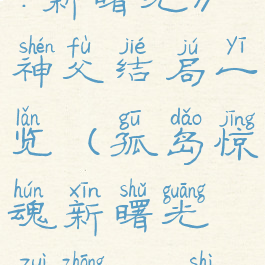 ：新曙光》
shén fù jié jú yī
神父结局一
lǎn gū dǎo jīng
览（孤岛惊
hún xīn shǔ guāng
魂新曙光
zuì zhōng shì